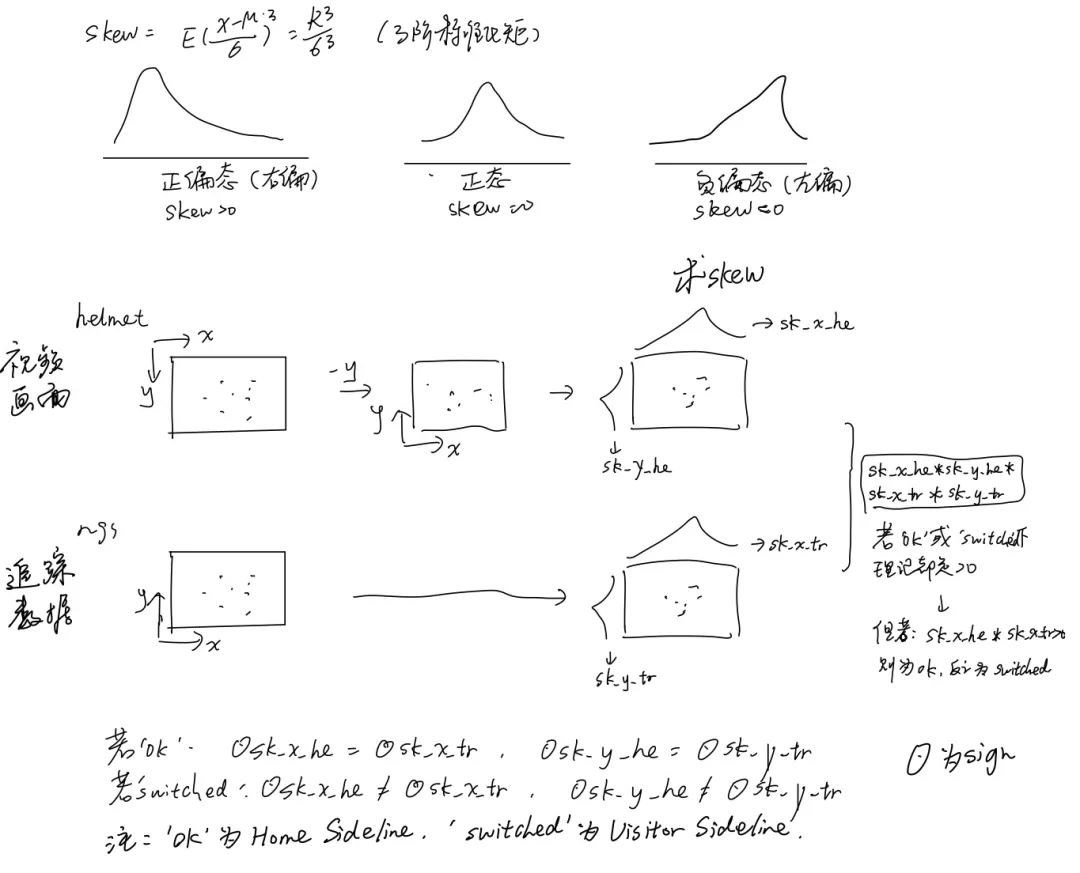 skew = E(x-μ/6)³ = k³/6³ (3阶标准化矩)
正偏态(右偏)
skew>0
正态
skew=0
负偏态(左偏)
skew<0
求skew
helmet
视频
画面
x
y
-y
y
x
→sk_x_he
sk_y_he
ngs
追踪
数据
y
x
→sk_x_tr
sk_y_tr
sk_x_he*sk_y_he*
sk_x_tr*sk_y_tr
若'ok'或'switched'
>0
但若: sk_x_he*sk_x_tr>0
则为ok,反之为switched
若'ok': ʘsk_x_he = ʘsk_x_tr, ʘsk_y_he = ʘsk_y_tr
若switched: ʘsk_x_he ≠ ʘsk_x_tr, ʘsk_y_he ≠ ʘsk_y_tr
ʘ为sign
注='ok'为Home Sideline, 'switched'为Visitor Sideline.